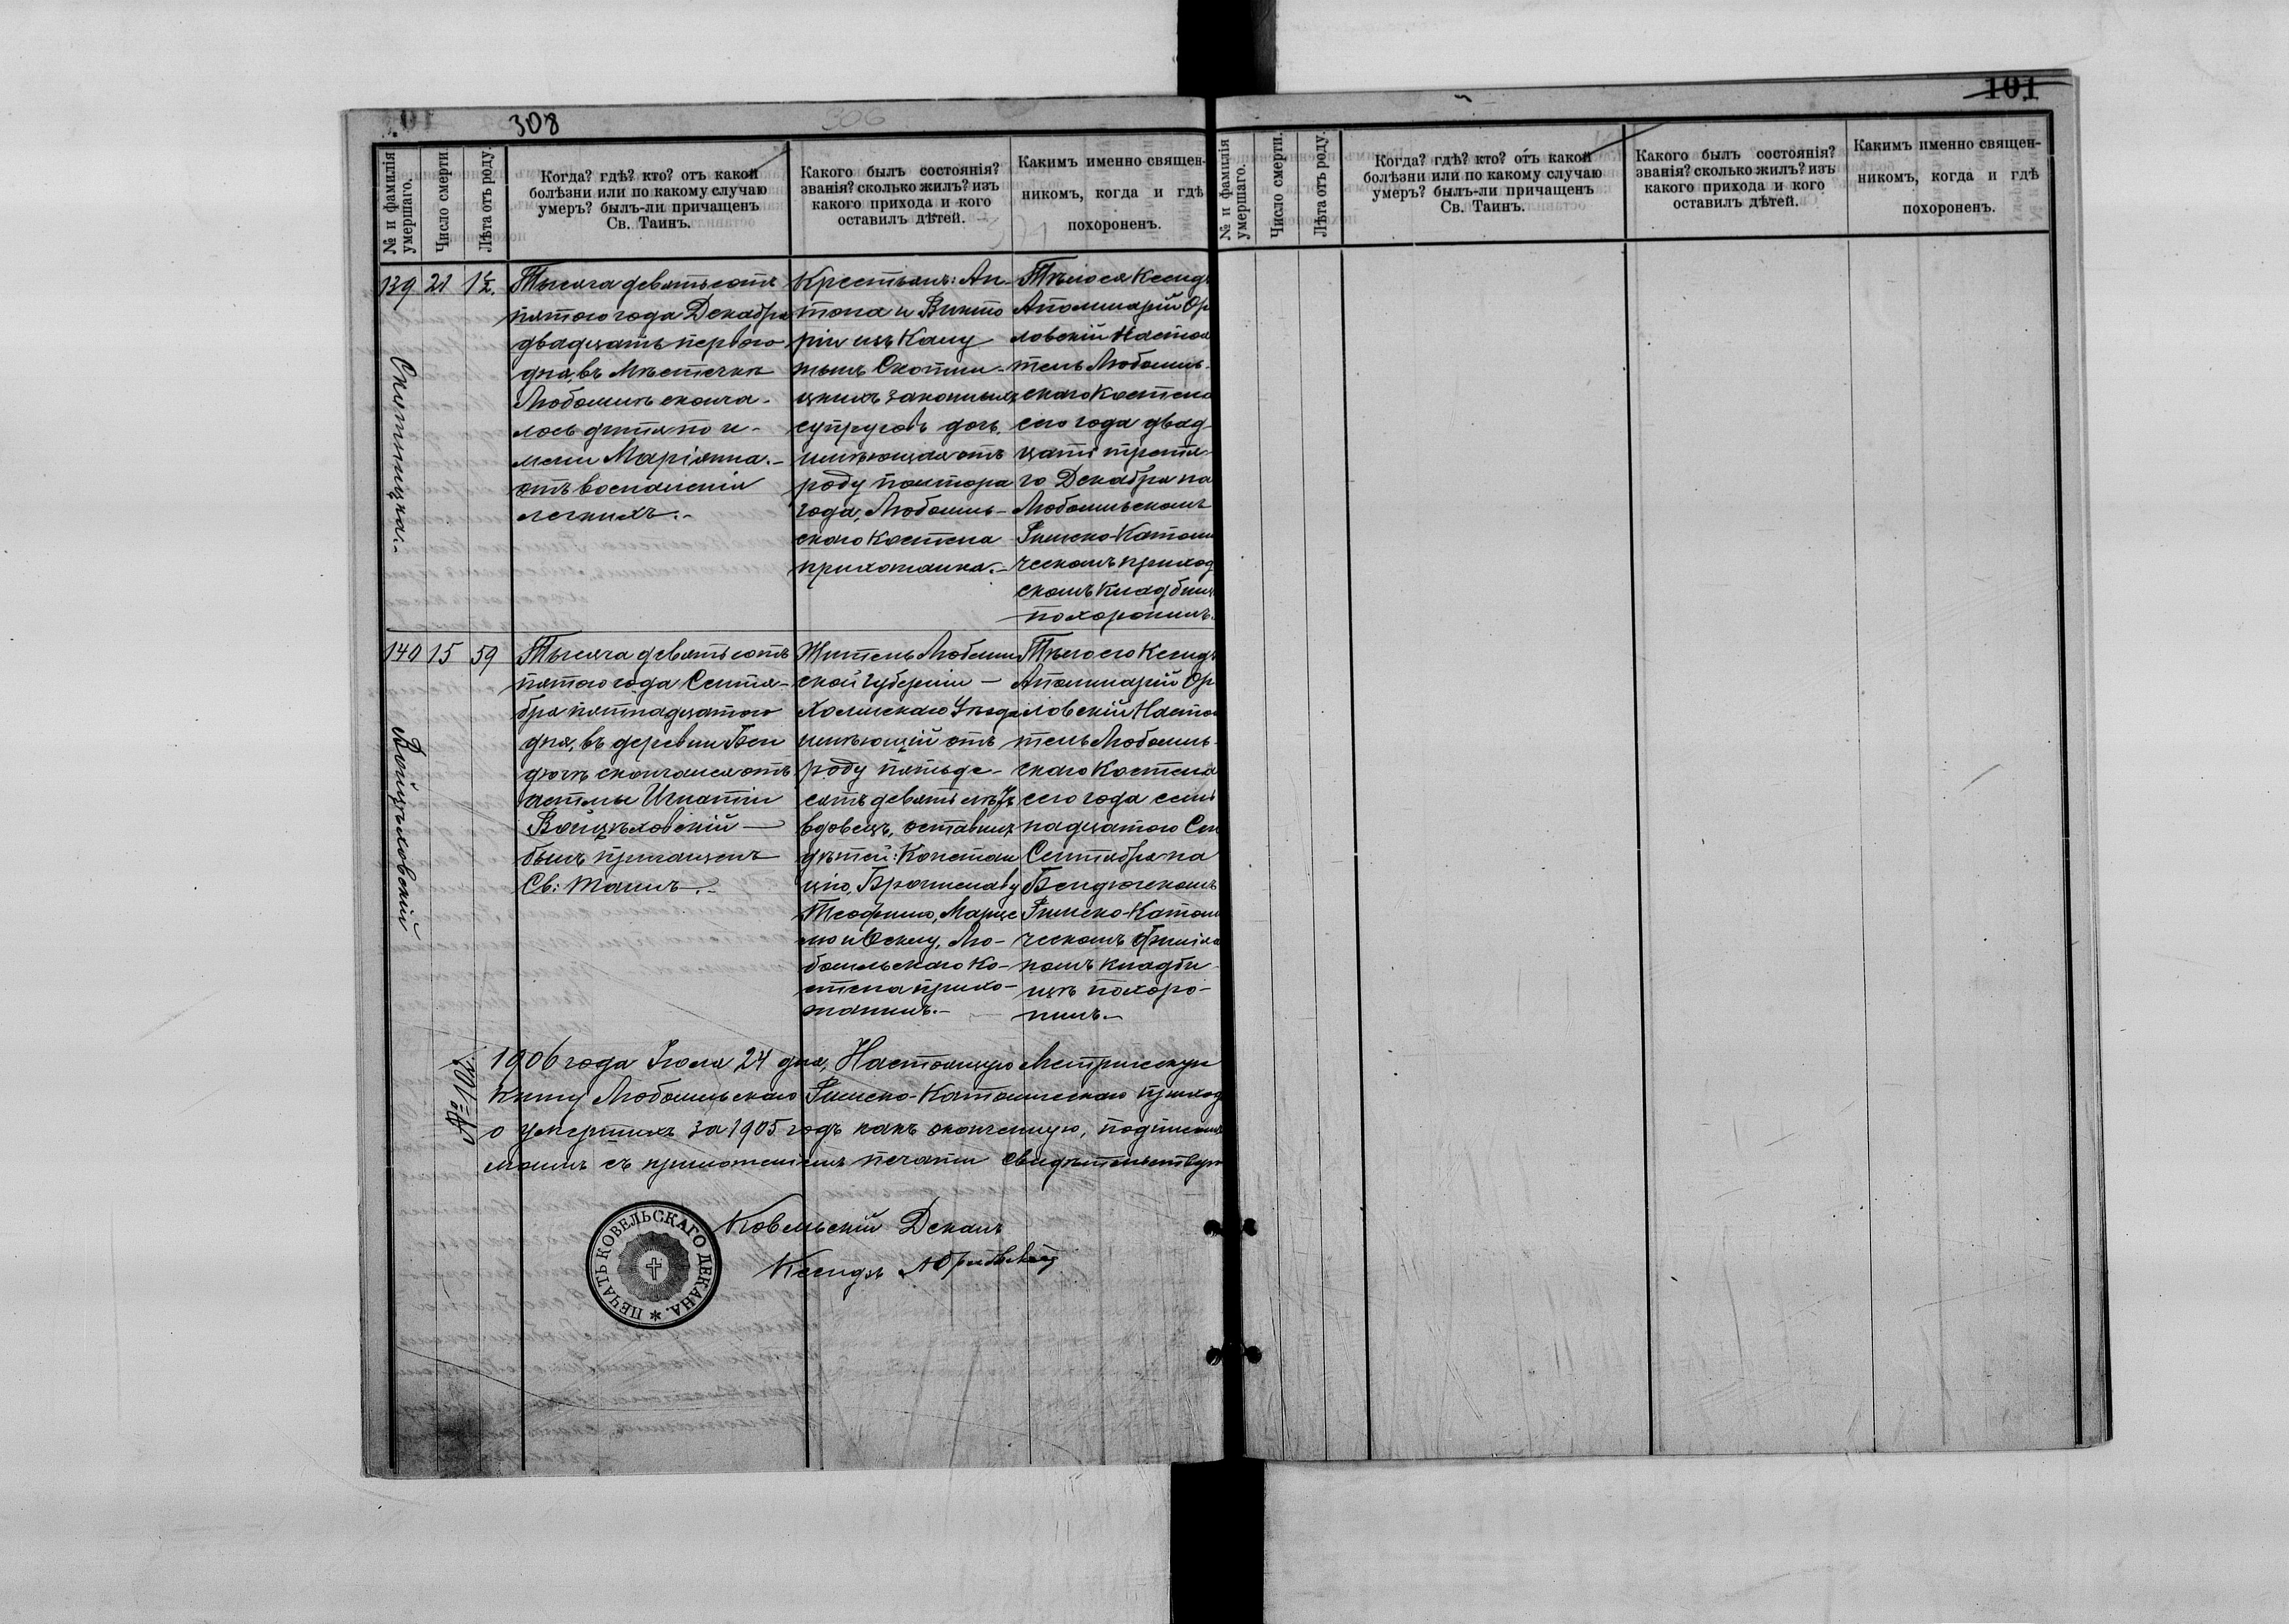 308
306
101
№ и фамилія умершаго.
Число смерти.
Лѣта отъ роду.
Когда? гдѣ? кто? отъ какой
болѣзни или по какому случаю
умеръ? былъ-ли причащенъ
Св. Таинъ.
Какого былъ состоянія?
званія? сколько жилъ? изъ
какого прихода и кого
оставилъ дѣтей.
Какимъ именно священ-
никомъ, когда и гдѣ
похороненъ.
139
21
1½.
Тысяча девятьсотъ
пятого года Декабря
двадцать перваго
дня, въ Мѣстечкѣ
Любомлѣ сконча-
лось дитя по и-
мени Маріянна.-
отъ воспаленія
легкихъ.-
Крестьянъ: Ан-
тона и Викто
ріи изъ Калу
жныхъ
законныхъ
супруговъ дочь,
имѣющая отъ
роду полтора
года, Любомль-
скаго Костела
прихожанка.-
Тѣло ея Ксендзъ
Аполинарій Ор
ловскій Настоя
тель Любомль-
скаго Костела
сего года двад-
цать третья-
го Декабря на
Любомльскомъ
Римско-Католи
ческомъ приход
скомъ кладбищѣ
похоронилъ.
140
15
59
Войцѣховскій
Тысяча девятьсотъ
пятого года Сентя-
бря пятнадцатого
дня, въ деревни Бен
дюгѣ скончался отъ
астмы Игнатій
Войцѣховскій —
былъ причащенъ
Св: Таинъ.-
Житель Люблин
ской Губерніи —
Холмскаго Уѣзда
имѣющій отъ
роду пятьде-
сятъ девять лѣтъ
вдовецъ, оставилъ
дѣтей: Констан
цію, Брониславу
Теофилю, Марце
лю и
Лю-
бомльскаго Ко-
стела прихо-
жанинъ.-
Тѣло его Ксендзъ
Аполинарій Ор
ловскій Настоя
тель Любомль-
скаго Костела
сего года семь
надцатого Сен
Сентября на
Бендюжскомъ
Римско-Католи
ческомъ филіаль
номъ кладби
щѣ похоро-
нилъ.-
№ 102.
1906 года Іюля 24 дня, Настоящую Метрическую
Книгу Любомльскаго Римско-Католическаго прихода
о умершихъ за 1905 годъ какъ оконченную, подписомъ
моимъ съ приложеніемъ печати свидѣтельствую
Ковельскій Деканъ
Ксендзъ
ПЕЧАТЬ КОВЕЛЬСКАГО ДЕКАНА.
№ и фамилія умершаго.
Число смерти.
Лѣта отъ роду.
Когда? гдѣ? кто? отъ какой
болѣзни или по какому случаю
умеръ? былъ-ли причащенъ
Св. Таинъ.
Какого былъ состоянія?
званія? сколько жилъ? изъ
какого прихода и кого
оставилъ дѣтей.
Какимъ именно священ-
никомъ, когда и гдѣ
похороненъ.